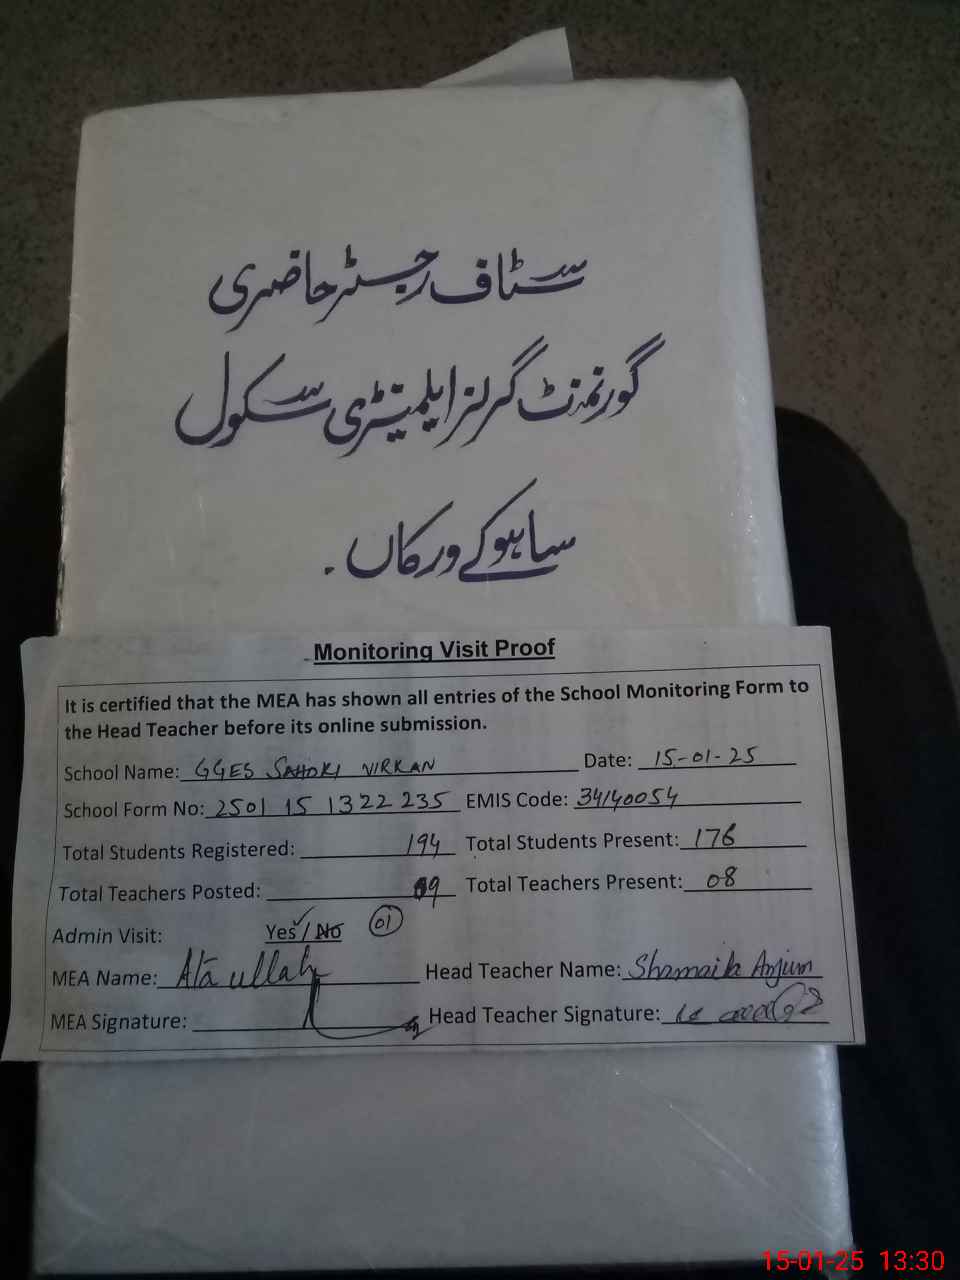 سٹاف رجسٹر حاضری
گورنمنٹ گرلز ایلیمنٹری سکول
ساہوکے ورکاں.
Monitoring Visit Proof
It is certified that the MEA has shown all entries of the School Monitoring Form to
the Head Teacher before its online submission.
School Name: GGES SAHOKI VIRKAN Date: 15-01-25
School Form No: 2501 15 1322 235 EMIS Code: 34140054
Total Students Registered: 194 Total Students Present: 176
Total Teachers Posted: 09 Total Teachers Present: 08
Admin Visit: Yes✓/No 01
MEA Name: Ata ullah Head Teacher Name: Shamaila Anjum
MEA Signature: Head Teacher Signature:
15-01-25 13:30